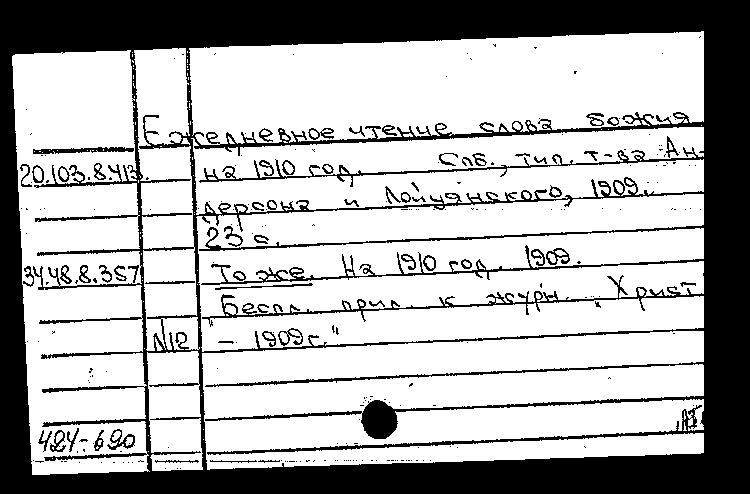 Ежедневное чтение слова божия
20.103.8.413. на 1910 год. Спб., тип. т-ва Ан-
дерсона и Лойцянского, 1909.
23 с.
34.48.8.357 То же. На 1910 год. 1909.
Беспл. прил. к журн. „Христ
№12 " – 1909г."
424-690